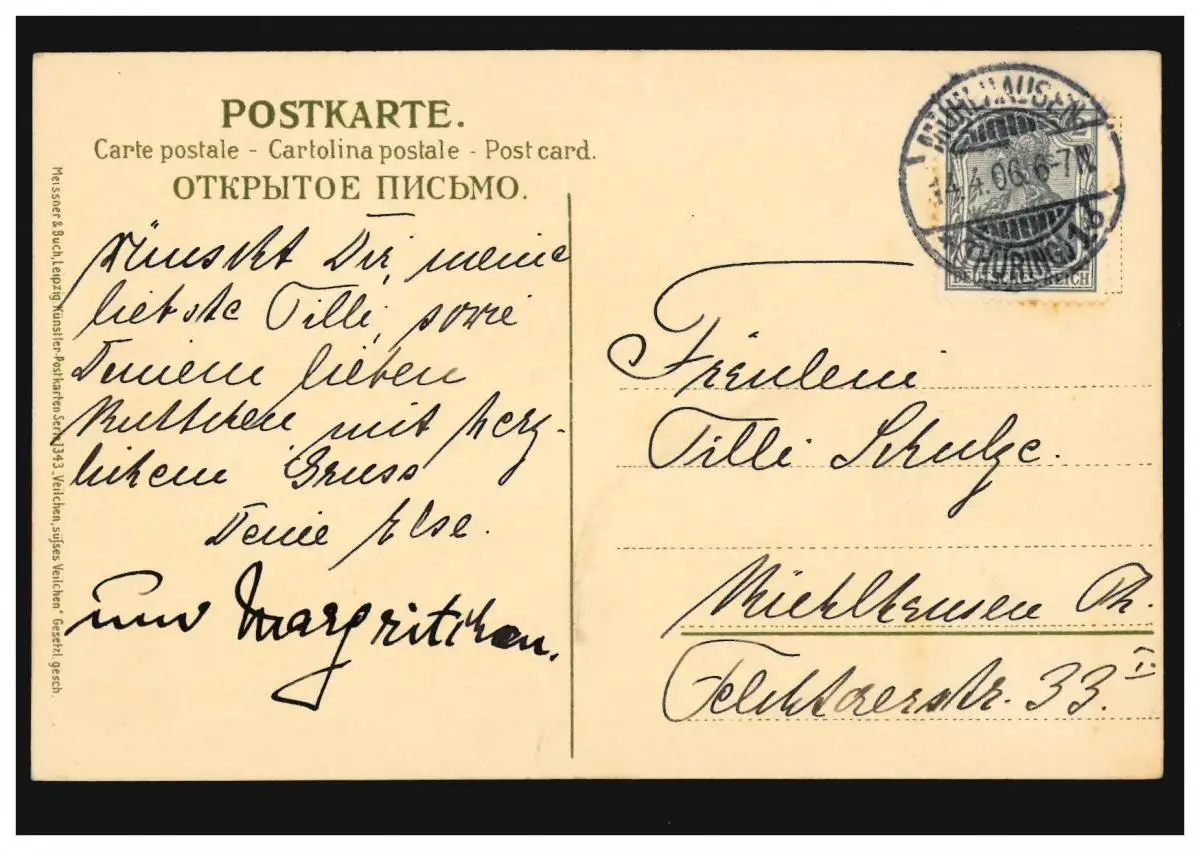 POSTKARTE.
Carte postale - Cartolina postale - Post card.
ОТКРЫТОЕ ПИСЬМО.
Wünscht Dir, meine
liebste Tilli, sowie
Deinem lieben
Muttchen mit herz-
lichem Gruss
Deine Else.
und Margritchen.
Meissner & Buch, Leipzig. Künstler-Postkarten Serie 1343 „Veilchen, süſses Veilchen" Gesetzl. gesch.
MÜHLHAUSEN
4.4.06. 6-7N.
(THÜRING.) 1b
DEUTSCHES REICH
Fräulein
Tilli Schulze.
Mühlhausen Th.
Felchtaerstr. 33. I.